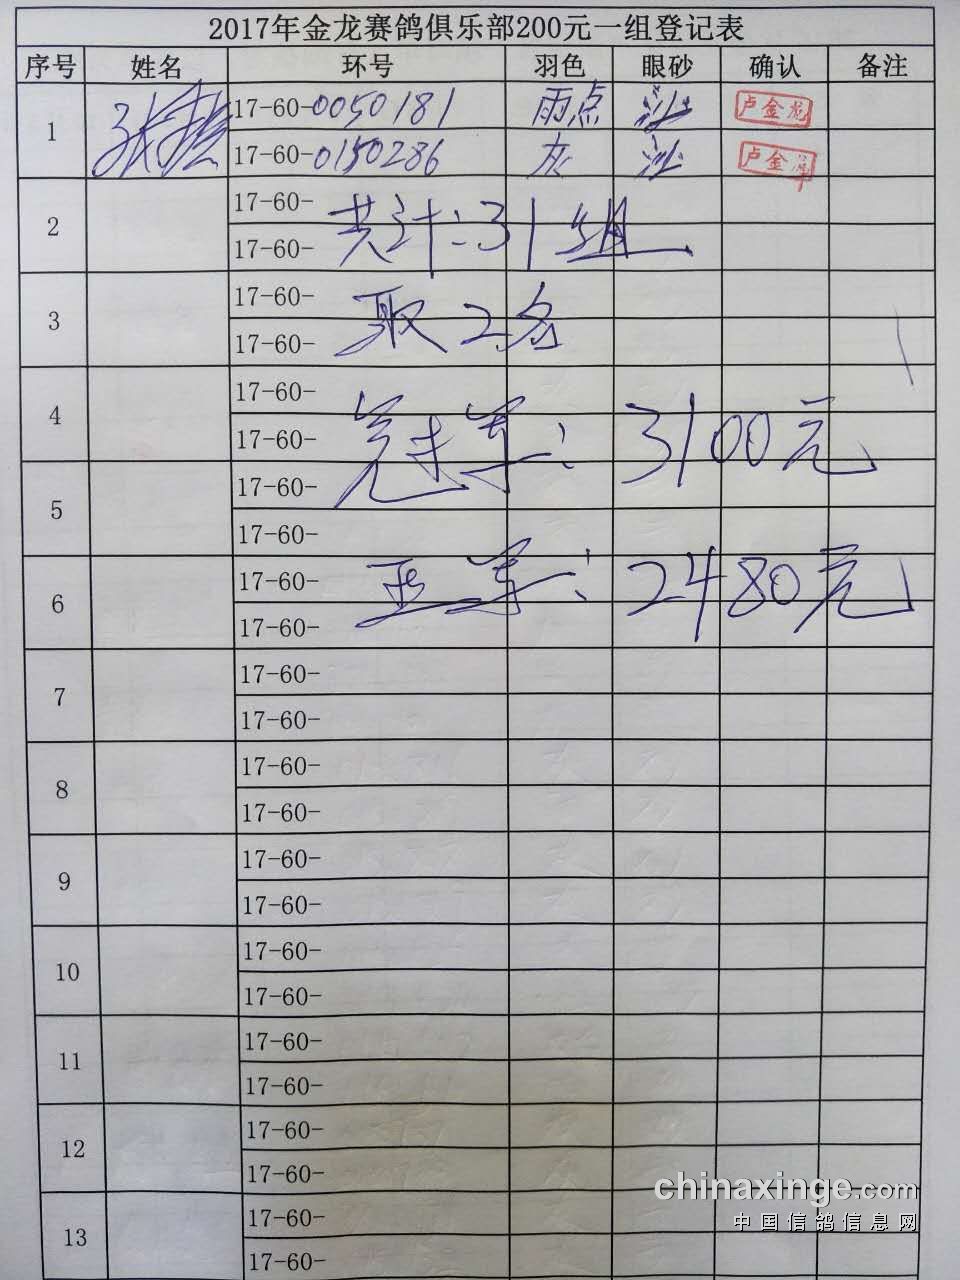 2017年金龙赛鸽俱乐部200元一组登记表
序号 姓名 环号 羽色 眼砂 确认 备注
1 17-60-0050181 雨点 沙 卢金龙
17-60-0150286 灰 沙 卢金
2 17-60- 共计:31组
17-60-
3 17-60- 取2名
17-60-
4 17-60-
17-60- 军: 3100元
5 17-60-
17-60-
6 17-60- 亚军: 2480元
17-60-
7 17-60-
17-60-
8 17-60-
17-60-
9 17-60-
17-60-
10 17-60-
17-60-
11 17-60-
17-60-
12 17-60-
17-60-
13 17-60-
17-60-
chinaxinge.com
中国信鸽信息网